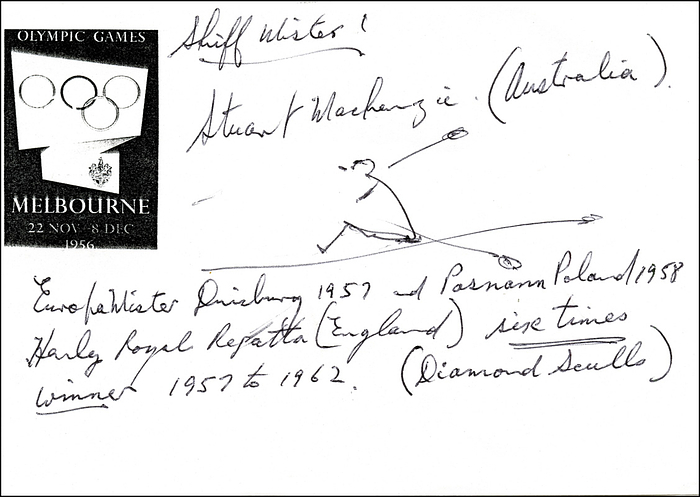 OLYMPIC GAMES
MELBOURNE
22 NOV - 8 DEC
1956
Skiff Mister!
Stuart Mackenzie. (Australia).
EuropaMister Duisburg 1957 and Posnann Poland 1958
Henly Royal Regatta (England) six times
winner 1957 to 1962. (Diamond Sculls)